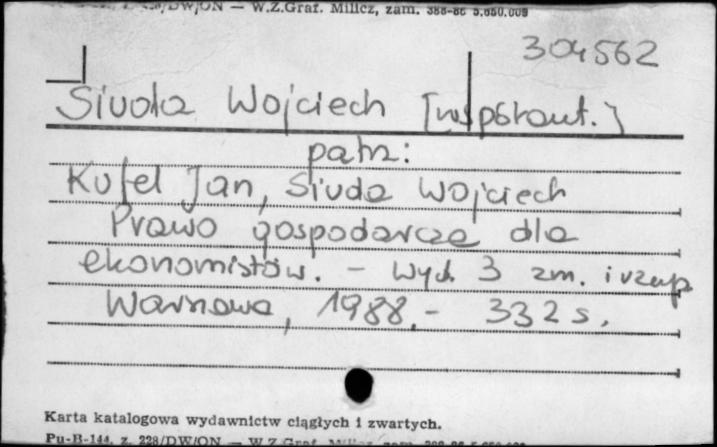 W.Z.Graf. Milicz, zam. 388-86 5.650.009
304562
Siuda Wojciech [współaut.]
patrz:
Kufel Jan, Siuda Wojciech
Prawo gospodarcze dla
ekonomistów. - Wyd. 3 zm. i uzup.
Warszawa, 1988.- 332 s.
Karta katalogowa wydawnictw ciągłych i zwartych.
Pu-B-144, z. 228/DW/ON — W.Z.Graf.